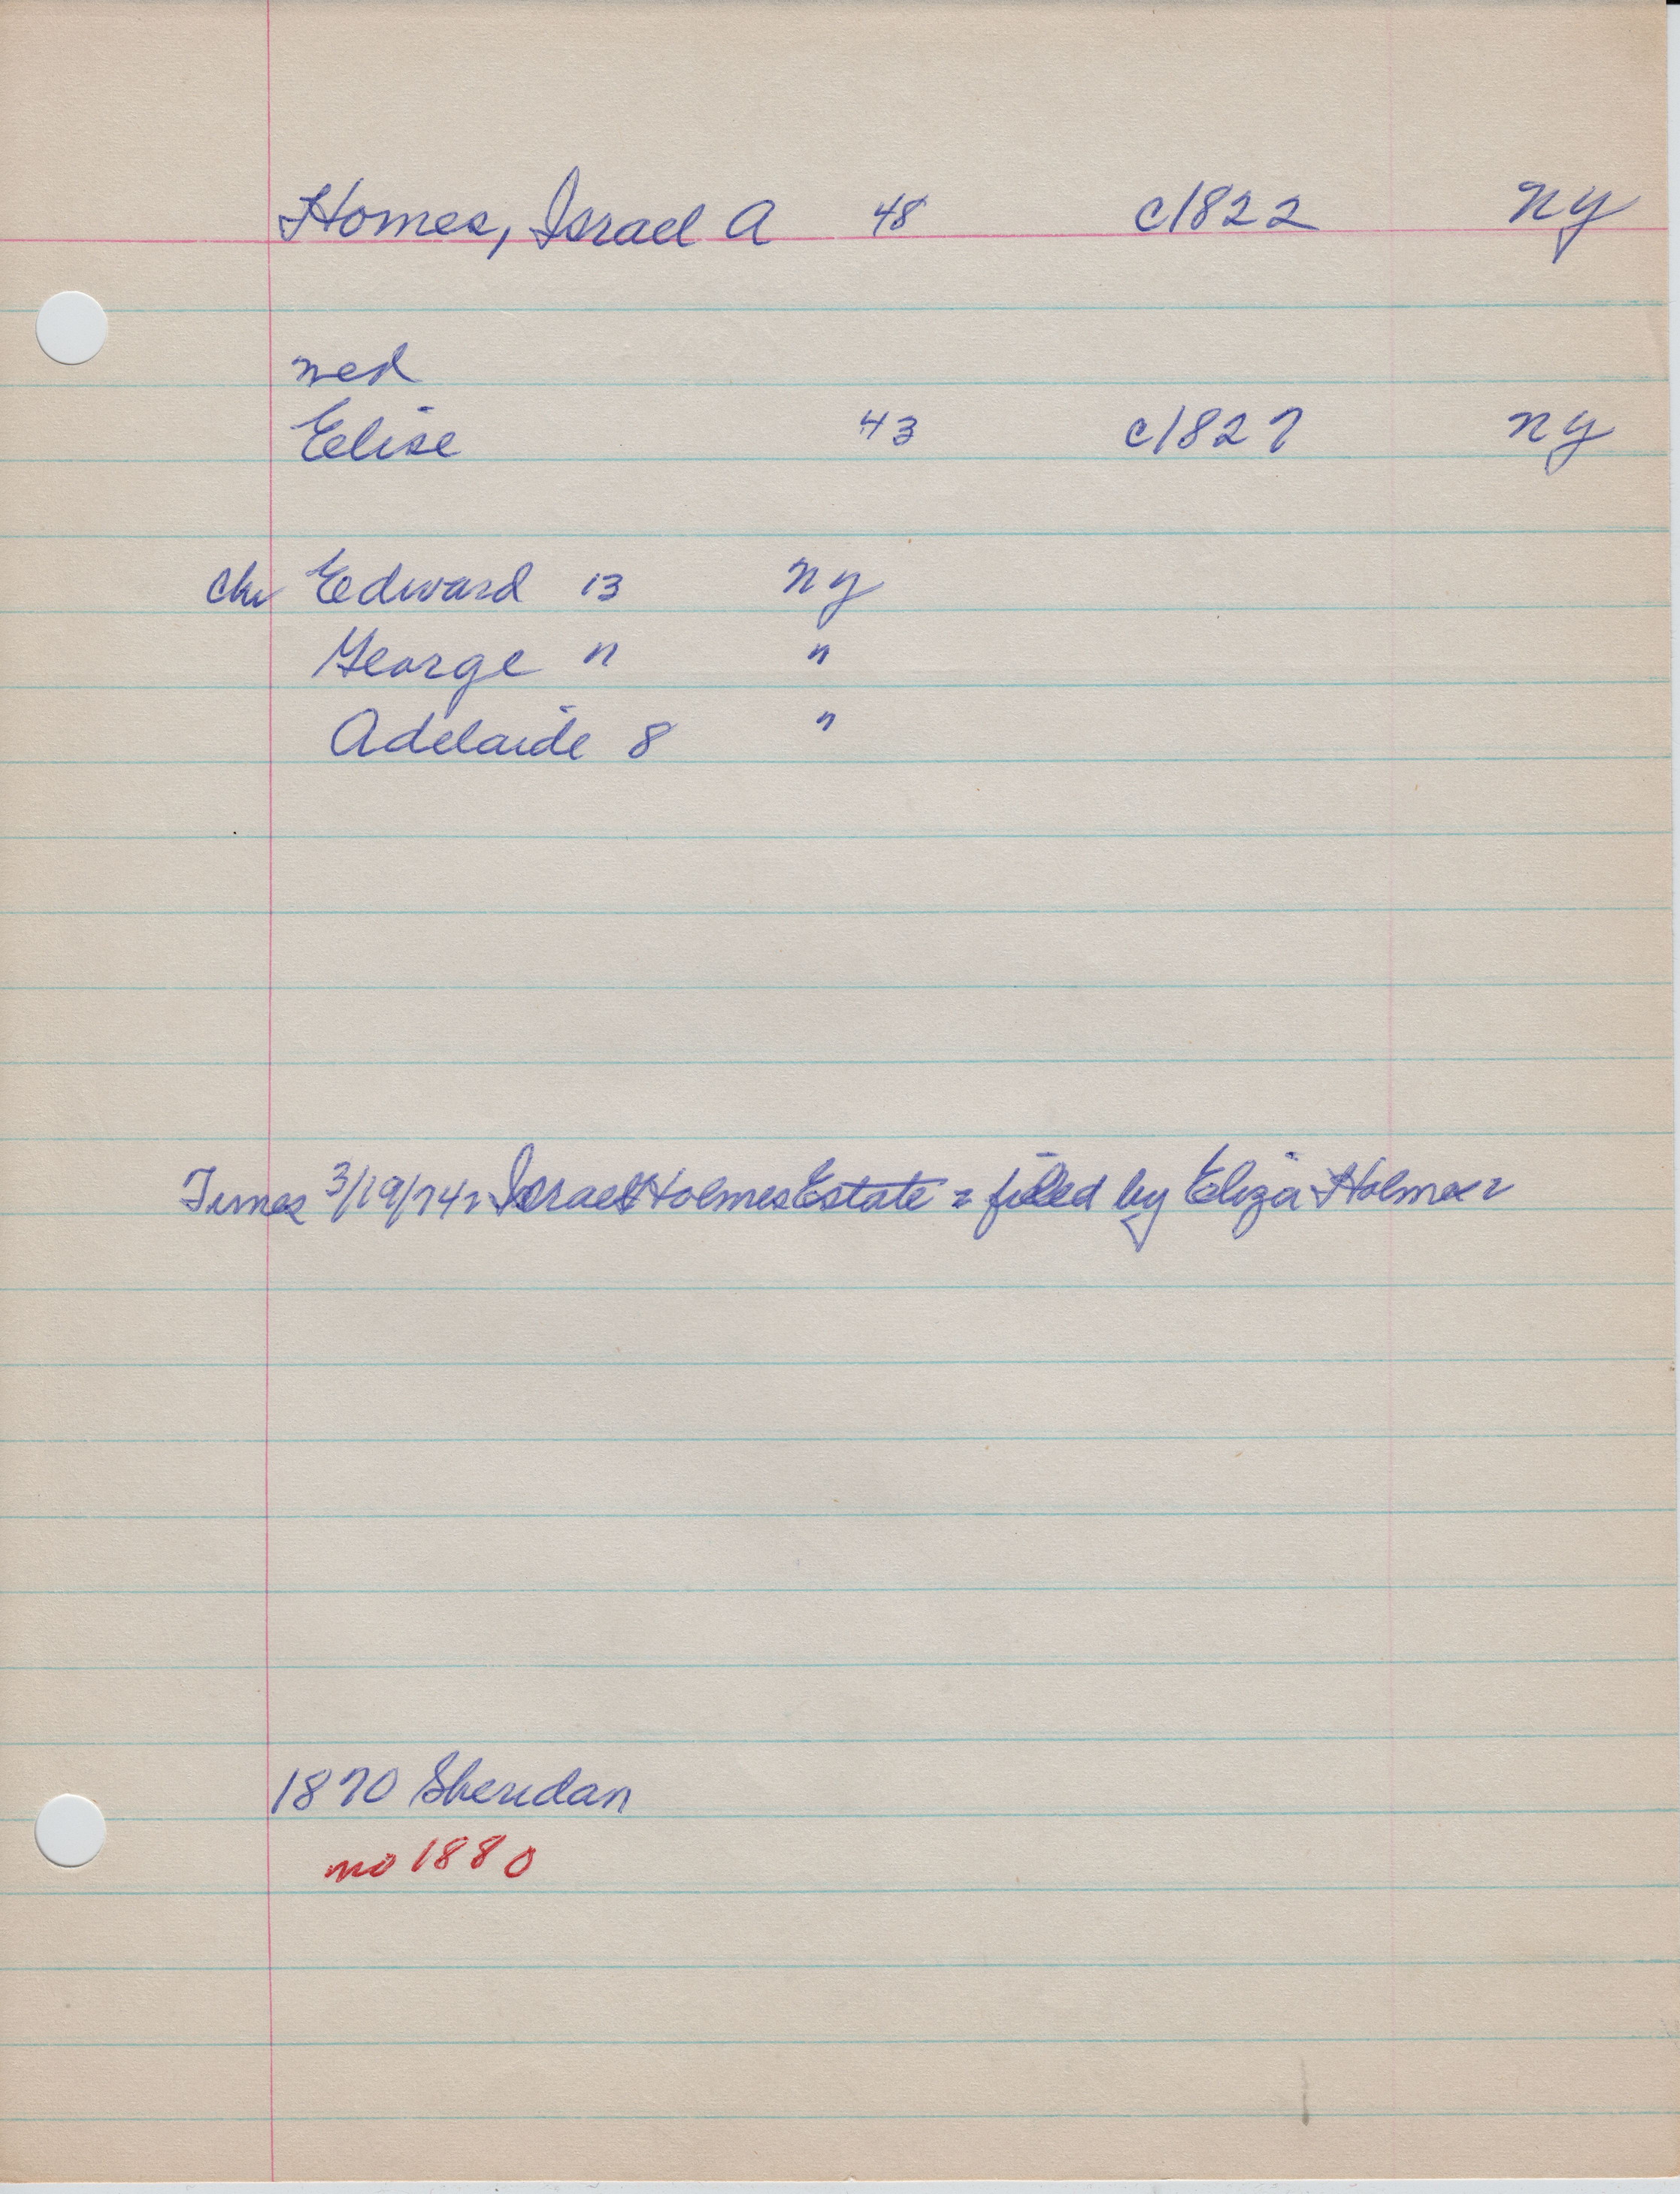 Homes, Israel A 48 c1822 NY
med
Elise 43 c1827 NY
Chr Edward 13 NY
George " "
Adelaide 8 "
Times 3/19/74: Israel Holmes Estate = filed by Eliza Holmes =
1870 Sheridan
no 1880